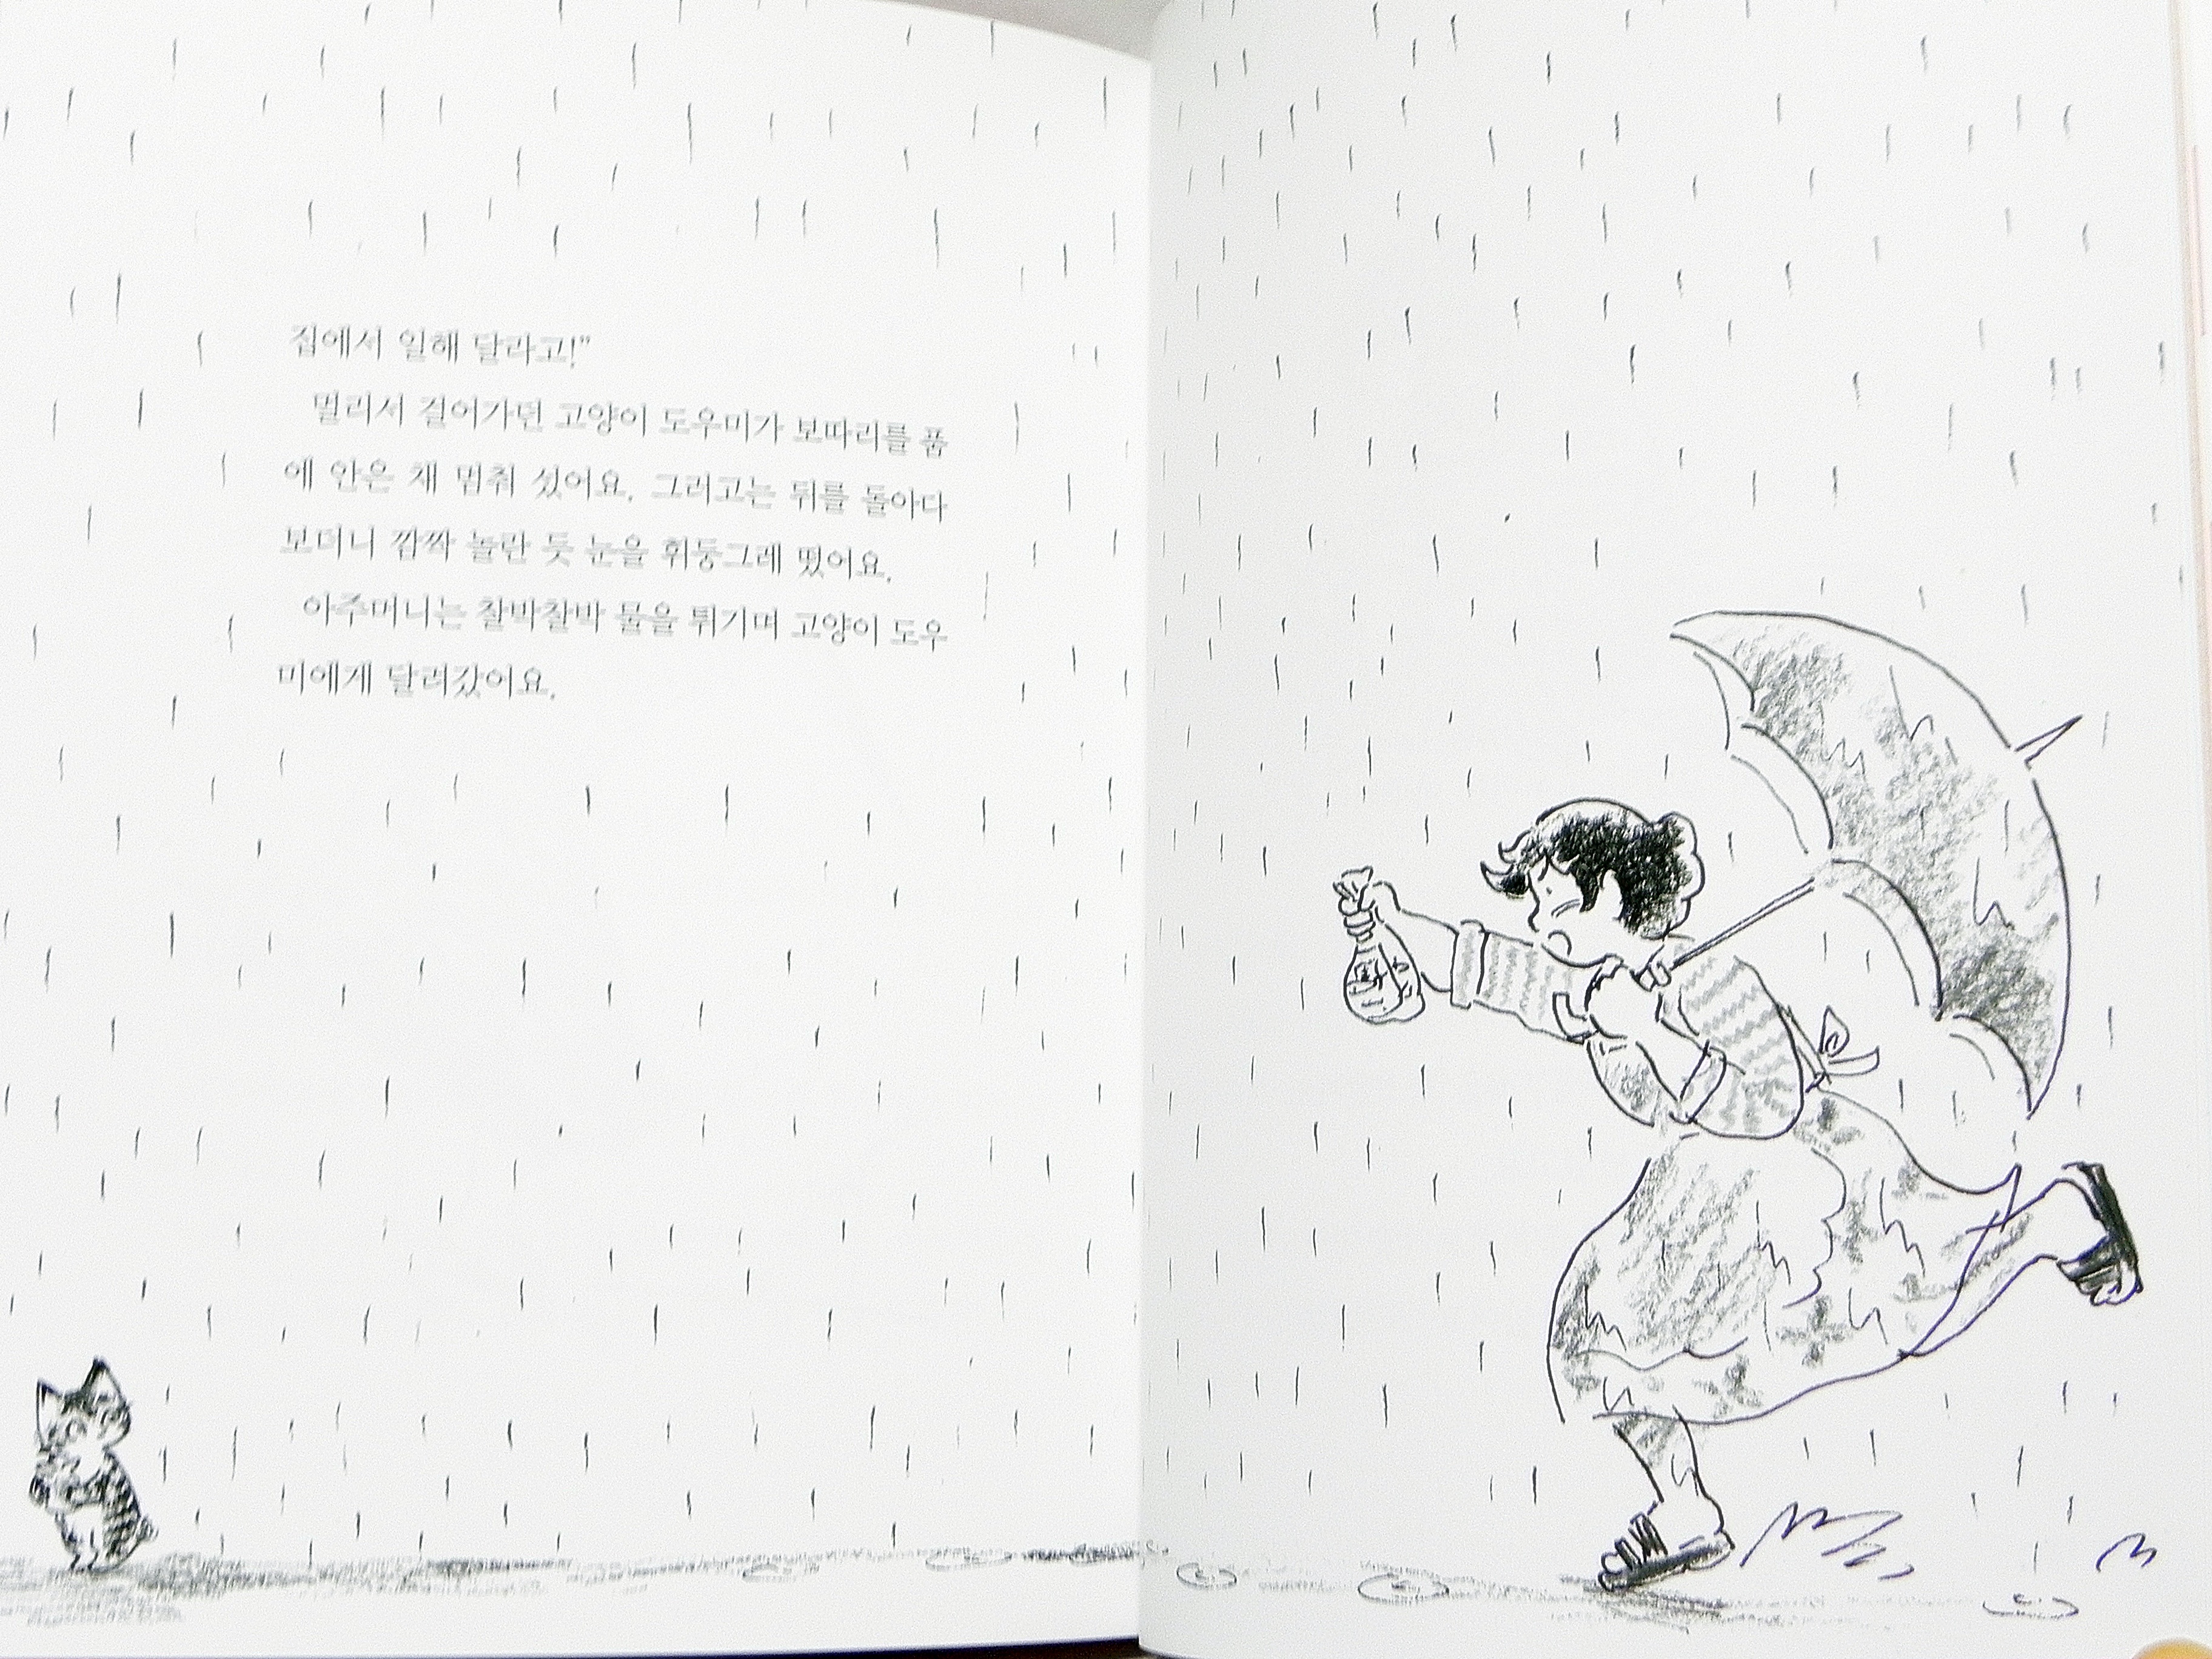 집에서 일해 달라고!”
멀리서 걸어가던 고양이 도우미가 보따리를 품
에 안은 채 멈춰 섰어요. 그러고는 뒤를 돌아다
보더니 깜짝 놀란 듯 눈을 휘둥그레 떴어요.
아주머니는 찰박찰박 물을 튀기며 고양이 도우
미에게 달려갔어요.